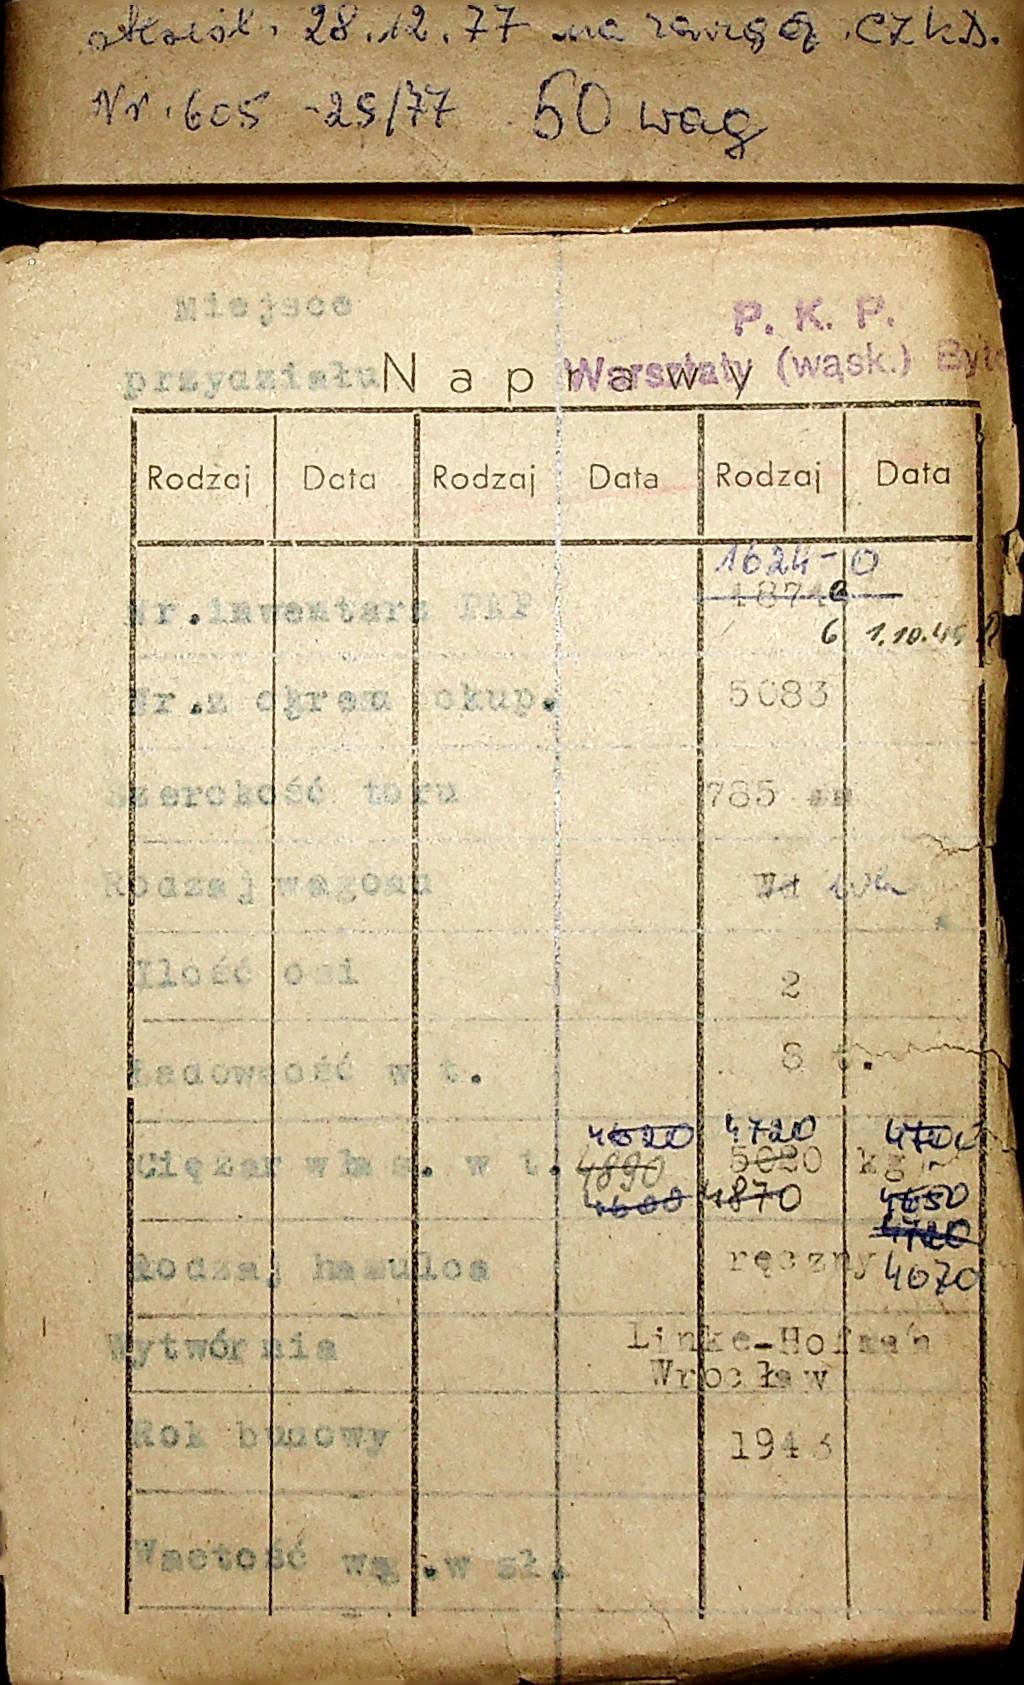 28.12.77 na
Nr. 605 -25/77 50 wag
Miejsce
P. K. P.
przydziału Naprawy Warsztaty (wąsk.) Byto
Rodzaj Data Rodzaj Data Rodzaj Data
1624-0
Nr.inwentarz PKP 1874
6 1.10.45
Nr.z okresu okup. 5083
Szerokość toru 785 mm
Rodzaj wagonu Wd Wh
Ilość osi 2
Ładowność w t. 8 t.
4620 4720 4700
Ciężar włas. w t. 4890 5020 kg
4600 4870 4650
4720
Rodzaj hamulca ręczny 4670
Wytwórnia Linke-Hofman
Wrocław
Rok budowy 1943
Wartość wg.w zł.